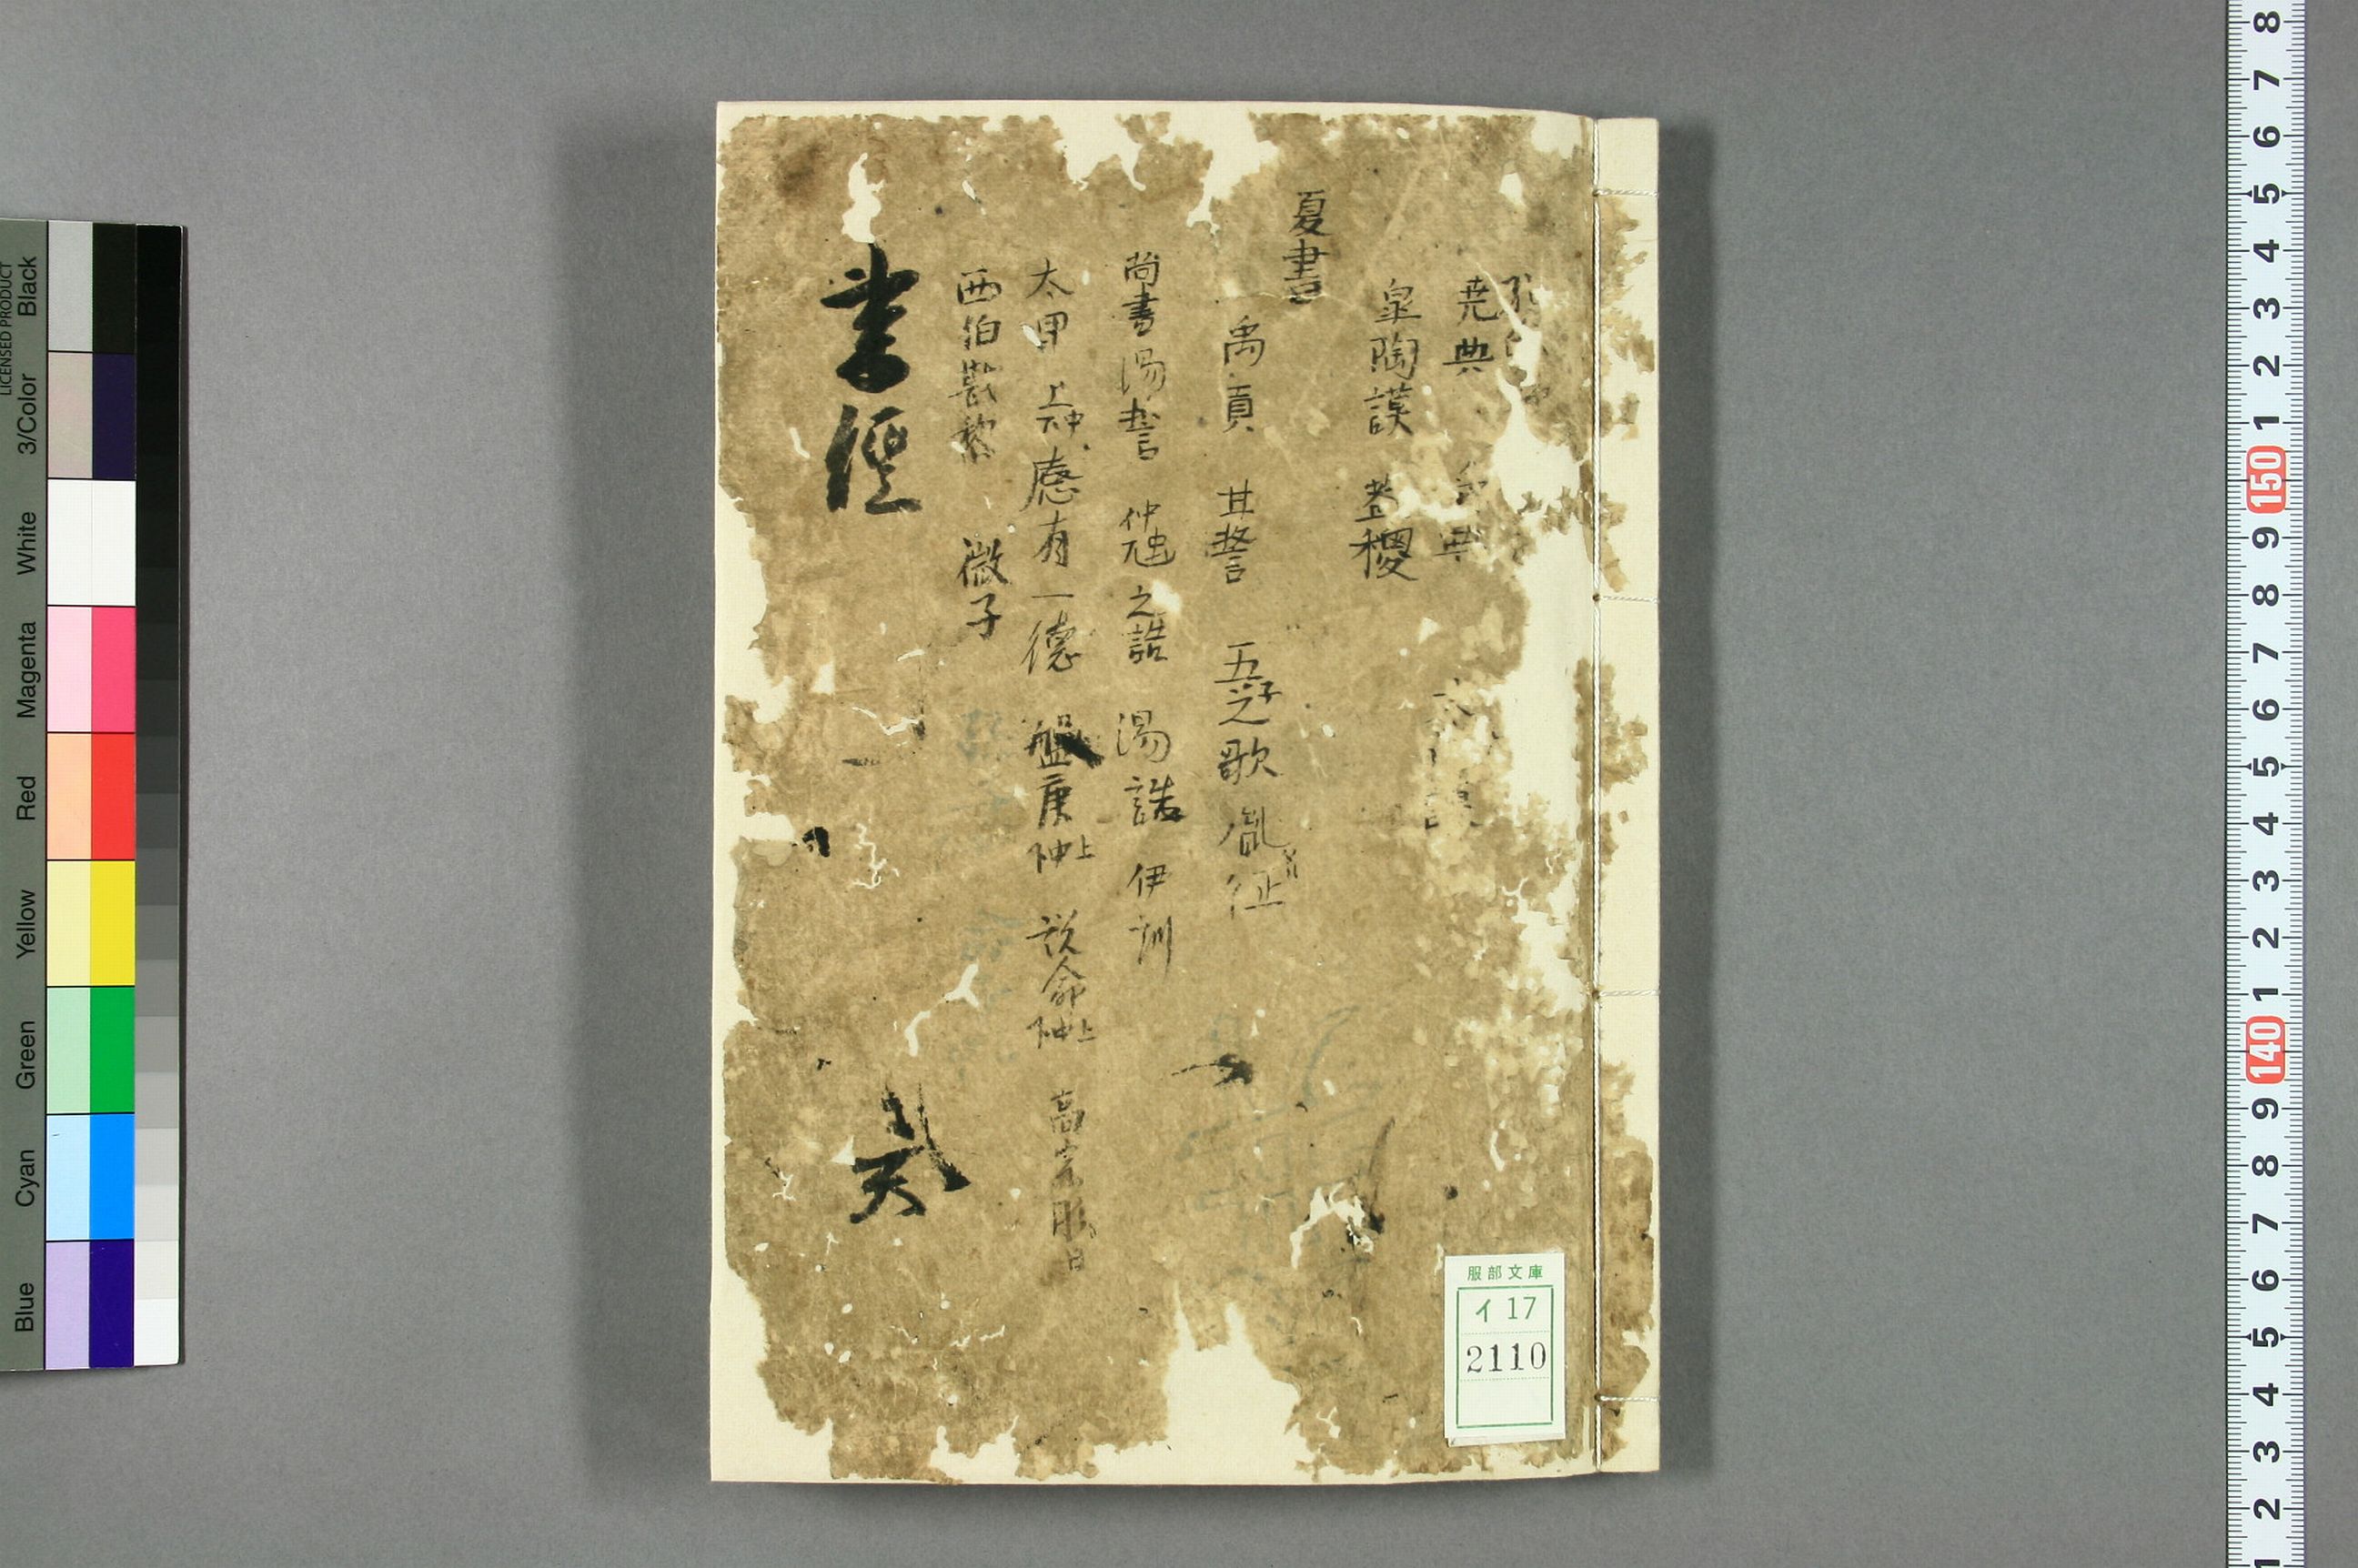 堯典 典
皐陶謨 益稷
夏書
禹貢 甘誓 五子之歌 胤征
尚書湯誓 仲虺之誥 湯誥 伊訓
太甲上中下 咸有一德 盤庚上中下 説命上中下 高宗肜日
西伯戡黎 微子
書經 貳
服部文庫
イ 17
2110
LICENSED PRODUCT
Black
3/Color
White
Magenta
Red
Yellow
Green
Cyan
Blue
8
7
6
5
4
3
2
1
150
9
8
7
6
5
4
3
2
1
140
9
8
7
6
5
4
3
2
1